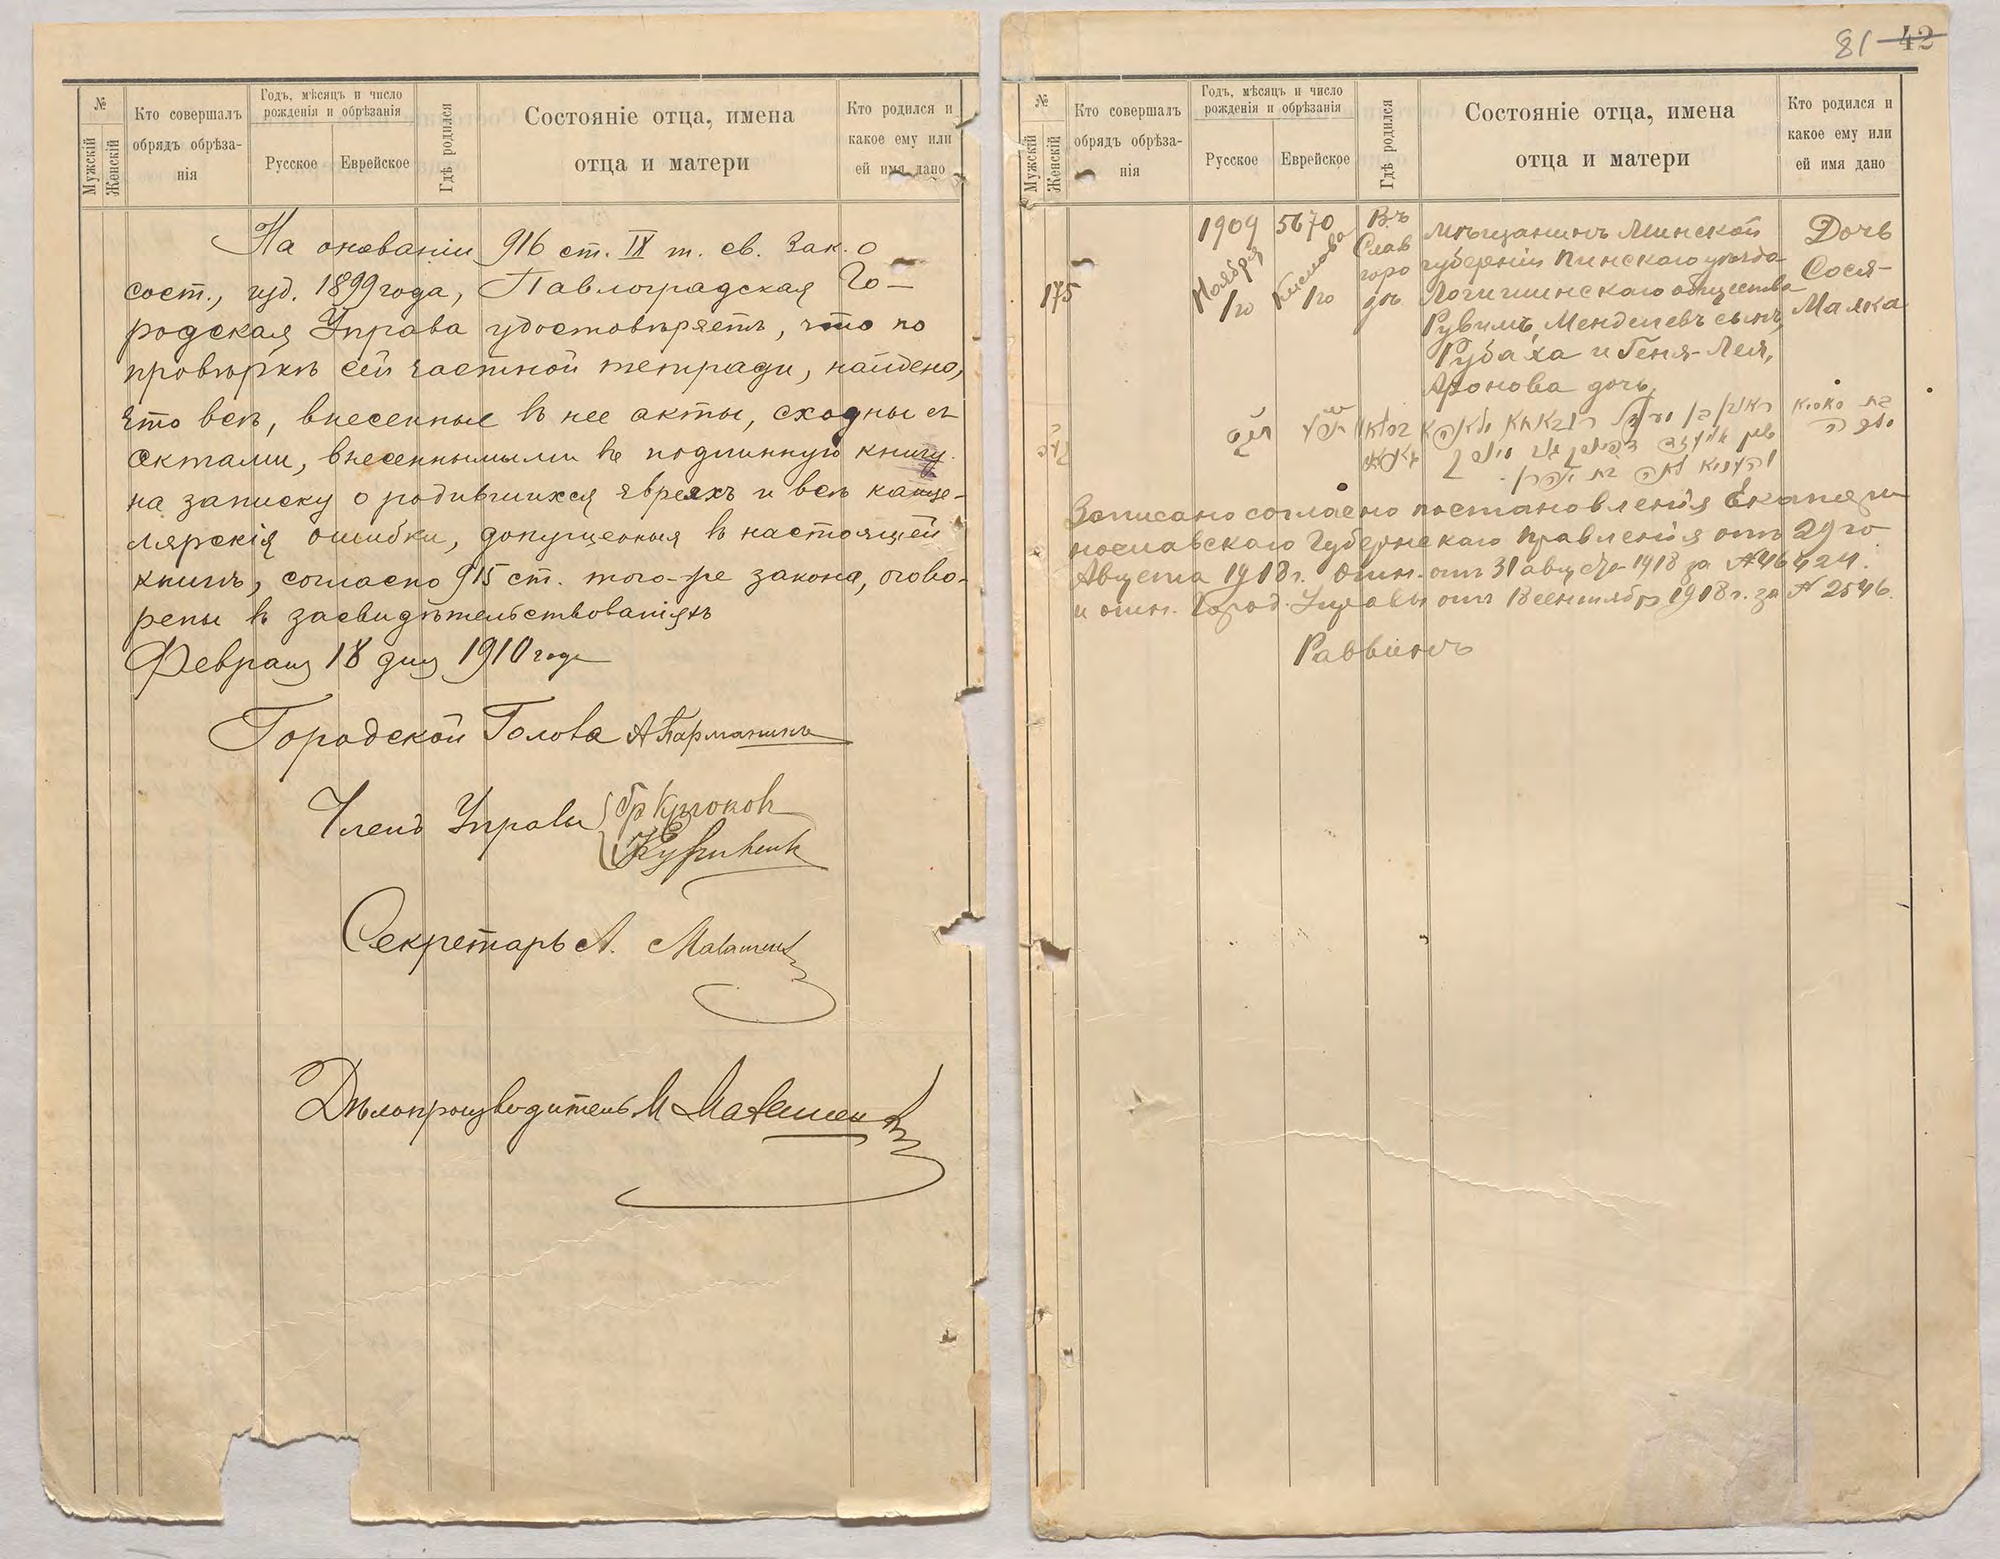 №
Мужскій
Женскій
Кто совершалъ
обрядъ обрѣза-
нія
Годъ, мѣсяцъ и число
рожденія и обрѣзанія
Русское
Еврейское
Гдѣ родился
Состояніе отца, имена
отца и матери
Кто родился и
какое ему или
ей имя дано
На основаніи 916 ст. IX т. св. Зак. о
сост., изд. 1899 года, Павлоградская Го-
родская Управа удостовѣряетъ, что по
провѣркѣ сей частной тетради, найдено,
что всѣ, внесенные въ нее акты, сходны съ
актами, внесенными въ подлинную книгу
на записку о родившихся евреяхъ и всѣ канце-
лярскія ошибки, допущенныя въ настоящей
книгѣ, согласно 915 ст. того-же закона, огово-
рены въ засвидѣтельствованіяхъ
Февраля 18 дня 1910 года
Городской Голова
Члены Управы
Секретарь А.
Дѣлопроизводитель М
81 42
№
Мужскій
Женскій
Кто совершалъ
обрядъ обрѣза-
нія
Годъ, мѣсяцъ и число
рожденія и обрѣзанія
Русское
Еврейское
Гдѣ родился
Состояніе отца, имена
отца и матери
Кто родился и
какое ему или
ей имя дано
175
1909
Ноября
1го
5670
Кислова
1го
Въ
Слав
горо
дѣ
Мѣщанинъ Минской
губерніи Пинскаго уѣзда
Логишинскаго общества
Рувимъ Менделевъ сынъ,
Рубаха и Геня-Лея,
Аронова дочь
Дочь
Сося-
Малка
Записано согласно постановленія Екатери
нославскаго Губернскаго Правленія отъ 29го
Августа 1918 г. отн. отъ 31 августа 1918 за № 46424.
и отн. Город. Управы отъ 18 сентября 1918 г. за № 2546.
Раввинъ